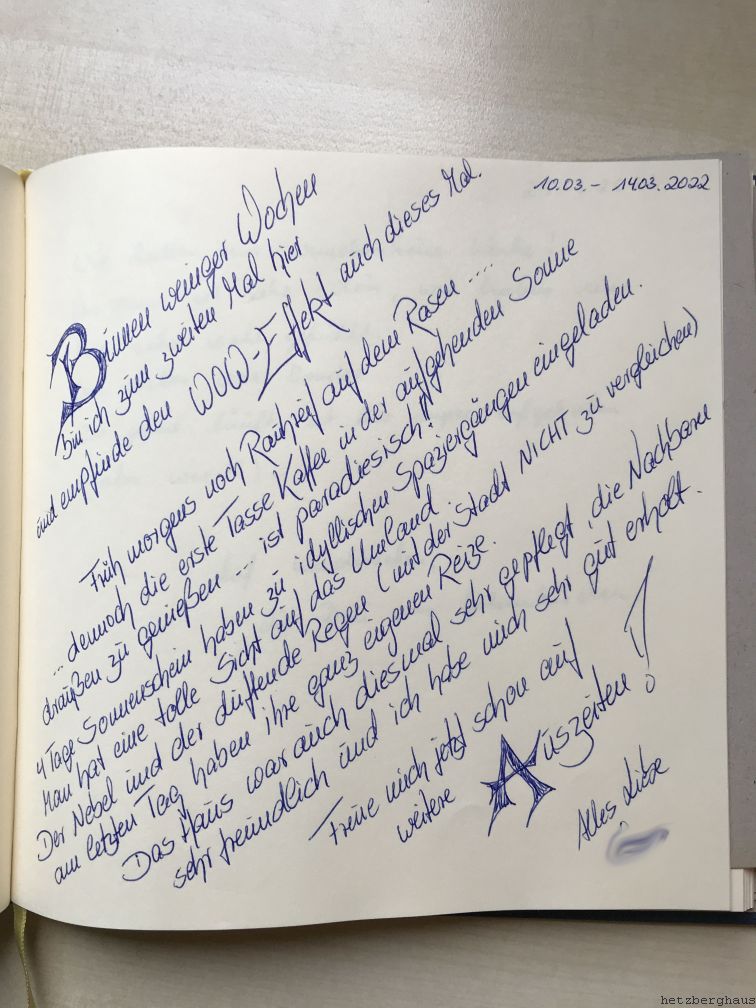 10.03. - 14.03.2022
Binnen weniger Wochen
bin ich zum zweiten Mal hier
und empfinde den WOW-Effekt auch dieses Mal.
Früh morgens noch Rauhreif auf dem Rasen ....
... dennoch die erste Tasse Kaffee in der aufgehenden Sonne
draußen zu genießen ... ist paradiesisch!!
4 Tage Sonnenschein haben zu idyllischen Spaziergängen eingeladen.
Man hat eine tolle Sicht auf das Umland.
Der Nebel und der duftende Regen (mit der Stadt NICHT zu vergleichen)
am letzten Tag haben ihre ganz eigenen Reize.
Das Haus war auch diesmal sehr gepflegt, die Nachbarn
sehr freundlich und ich habe mich sehr gut erholt.
Freue mich jetzt schon auf
weitere Auszeiten!
Alles Liebe
hetzberghaus